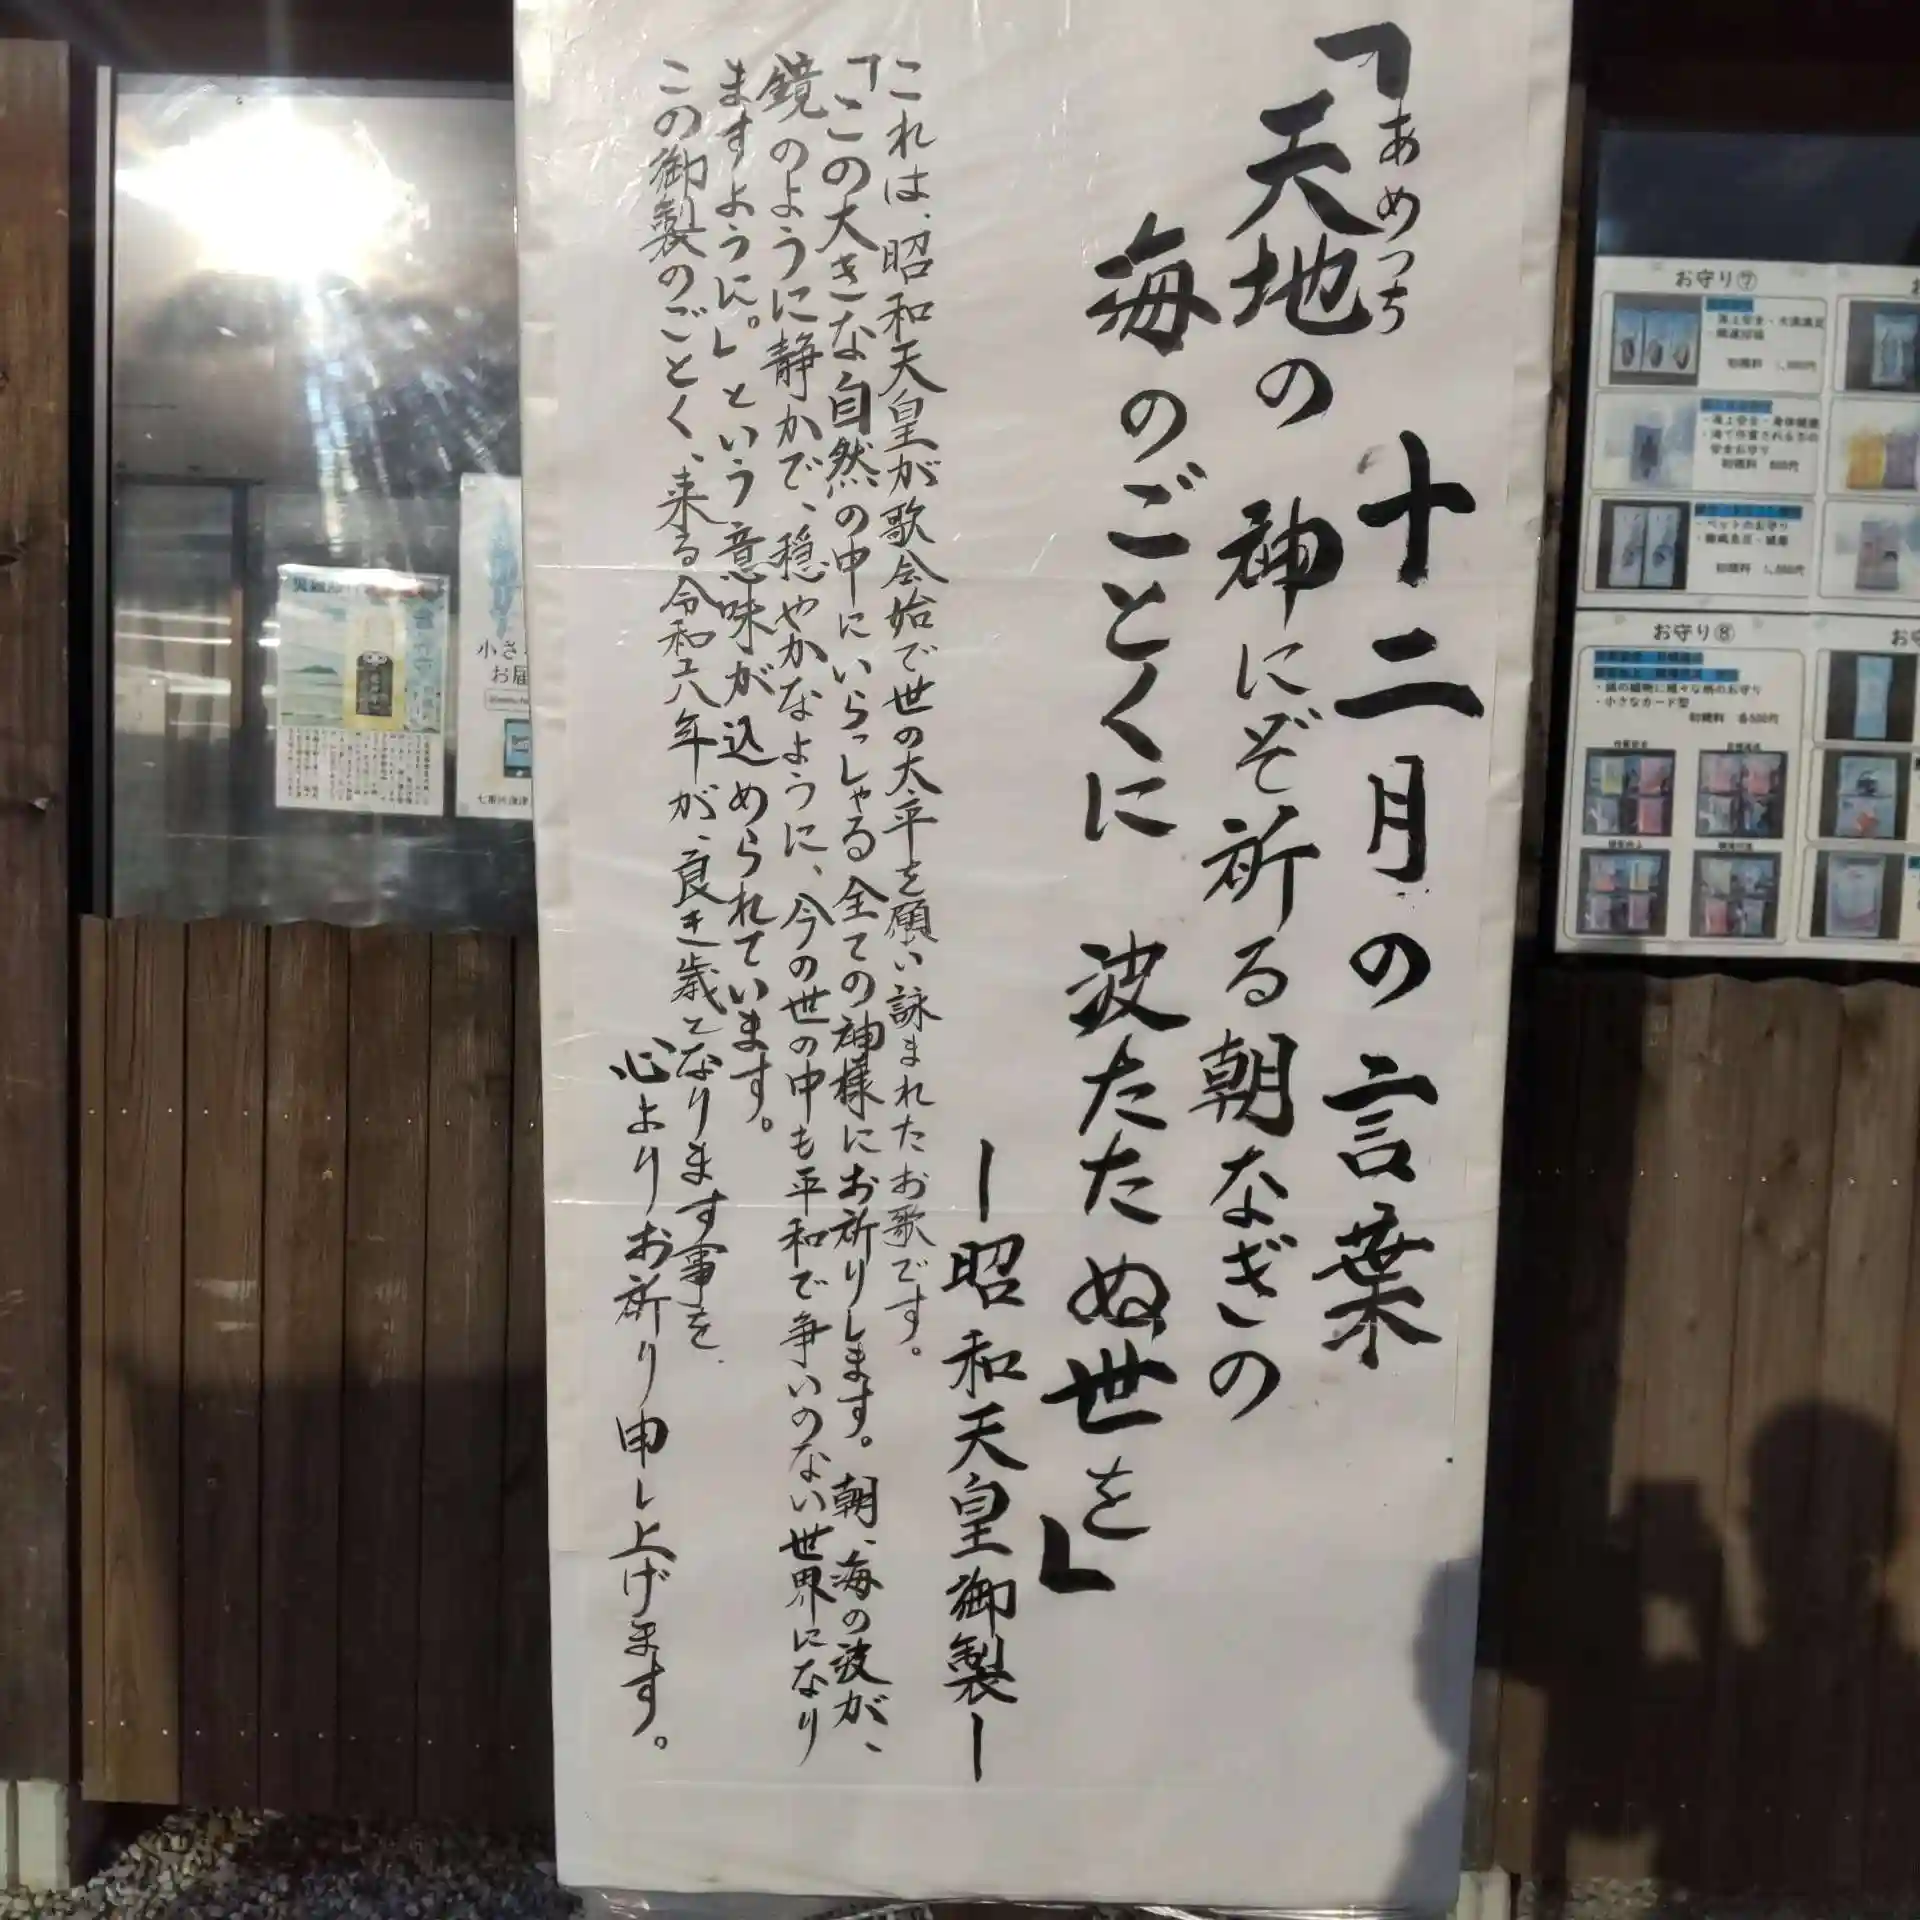 十二月の言葉
「天地の 神にぞ祈る朝なぎの
あめつち
海のごとくに 波たたぬ世を」
ー昭和天皇御製ー
これは、昭和天皇が歌会始で世の太平を願い詠まれたお歌です。
「この大きな自然の中にいらっしゃる全ての神様にお祈りします。朝、海の波が、
鏡のように静かで、穏やかなように、今の世の中も平和で争いのない世界になり
ますように。」という意味が込められています。
この御製のごとく、来る令和八年が、良き歳となります事を
心よりお祈り申し上げます。
お守り⑦
初穂料
初穂料 800円
・ペットのお守り
初穂料
お守り⑧
・小さなカード型
初穂料 各500円
小さ
お届